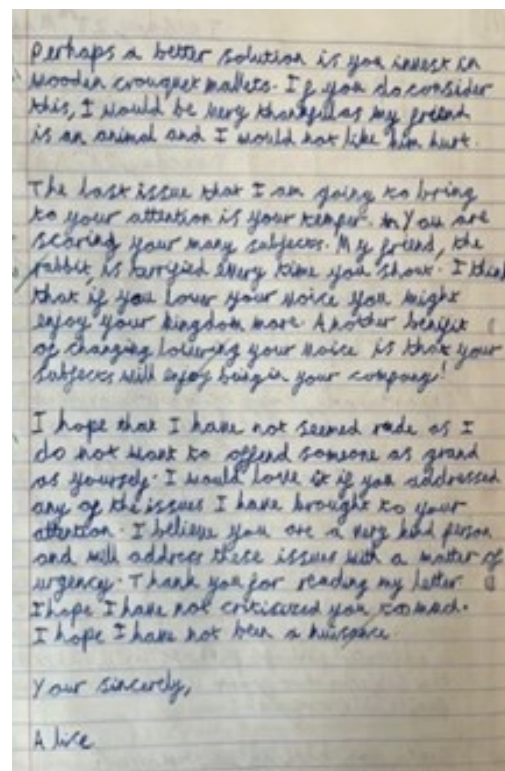 Perhaps a better solution is you invest in
wooden crouquet mallets. If you do consider
this, I would be very thankful as my friend
is an animal and I would not like him hurt.
The last issue that I am going to bring
to your attention is your temper. You are
scaring your many subjects. My friend, the
rabbit, is terrified every time you shout. I think
that if you lower your voice you might
enjoy your kingdom more. Another benifit
of changing lowering your voice is that your
subjects will enjoy being in your company!
I hope that I have not seemed rude as I
do not want to offend someone as grand
as yourself. I would love it if you addressed
any of the issues I have brought to your
attention. I believe you are a very kind person
and will address these issues with a matter of
urgency. Thank you for reading my letter.
I hope I have not critisized you too much.
I hope I have not been a nuisance.
Your sincerely,
Alice